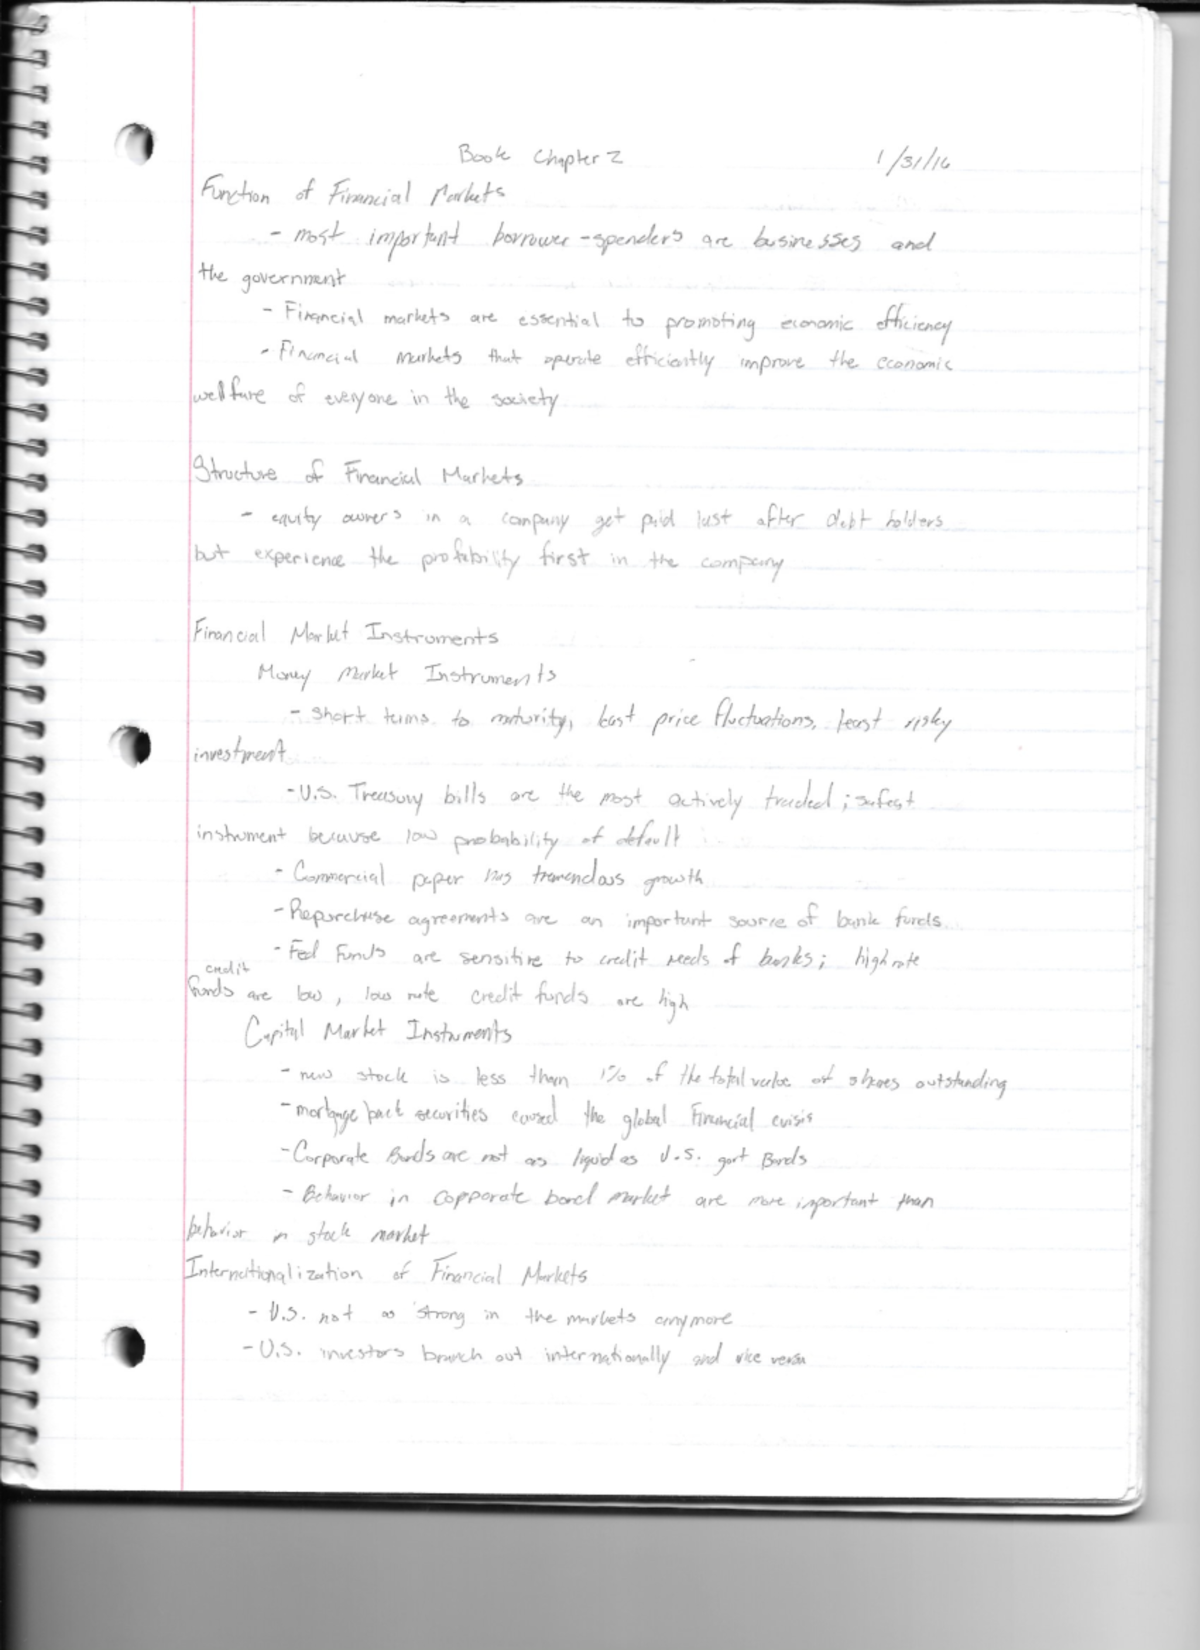 Book Chapter 2 1/31/16
Function of Financial Markets
- most important borrower-spenders are businesses and
the government
- Financial markets are essential to promoting economic efficiency
- Financial markets that operate efficiently improve the economic
wellfare of everyone in the society
Structure of Financial Markets
- equity owners in a company get paid last after debt holders
but experience the profability first in the company
Financial Market Instruments
Money Market Instruments
- short terms to maturity, least price fluctuations, least risky
investment
- U.S. Treasury bills are the most actively traded; safest
instrument because low probability of default
- Commercial paper has tremendous growth
- Repurchase agreements are an important source of bank funds
- Fed Funds are sensitive to credit needs of banks; high rate
credit
funds are low, low rate credit funds are high
Capital Market Instruments
- new stock is less than 1% of the total value of shares outstanding
- mortgage back securities caused the global financial crisis
- Corporate Bonds are not as liquid as U.S. govt Bonds
- Behavior in copporate bond market are more important than
behavior in stock market
Internationalization of Financial Markets
- U.S. not as strong in the markets anymore
- U.S. investors branch out internationally and vice versa